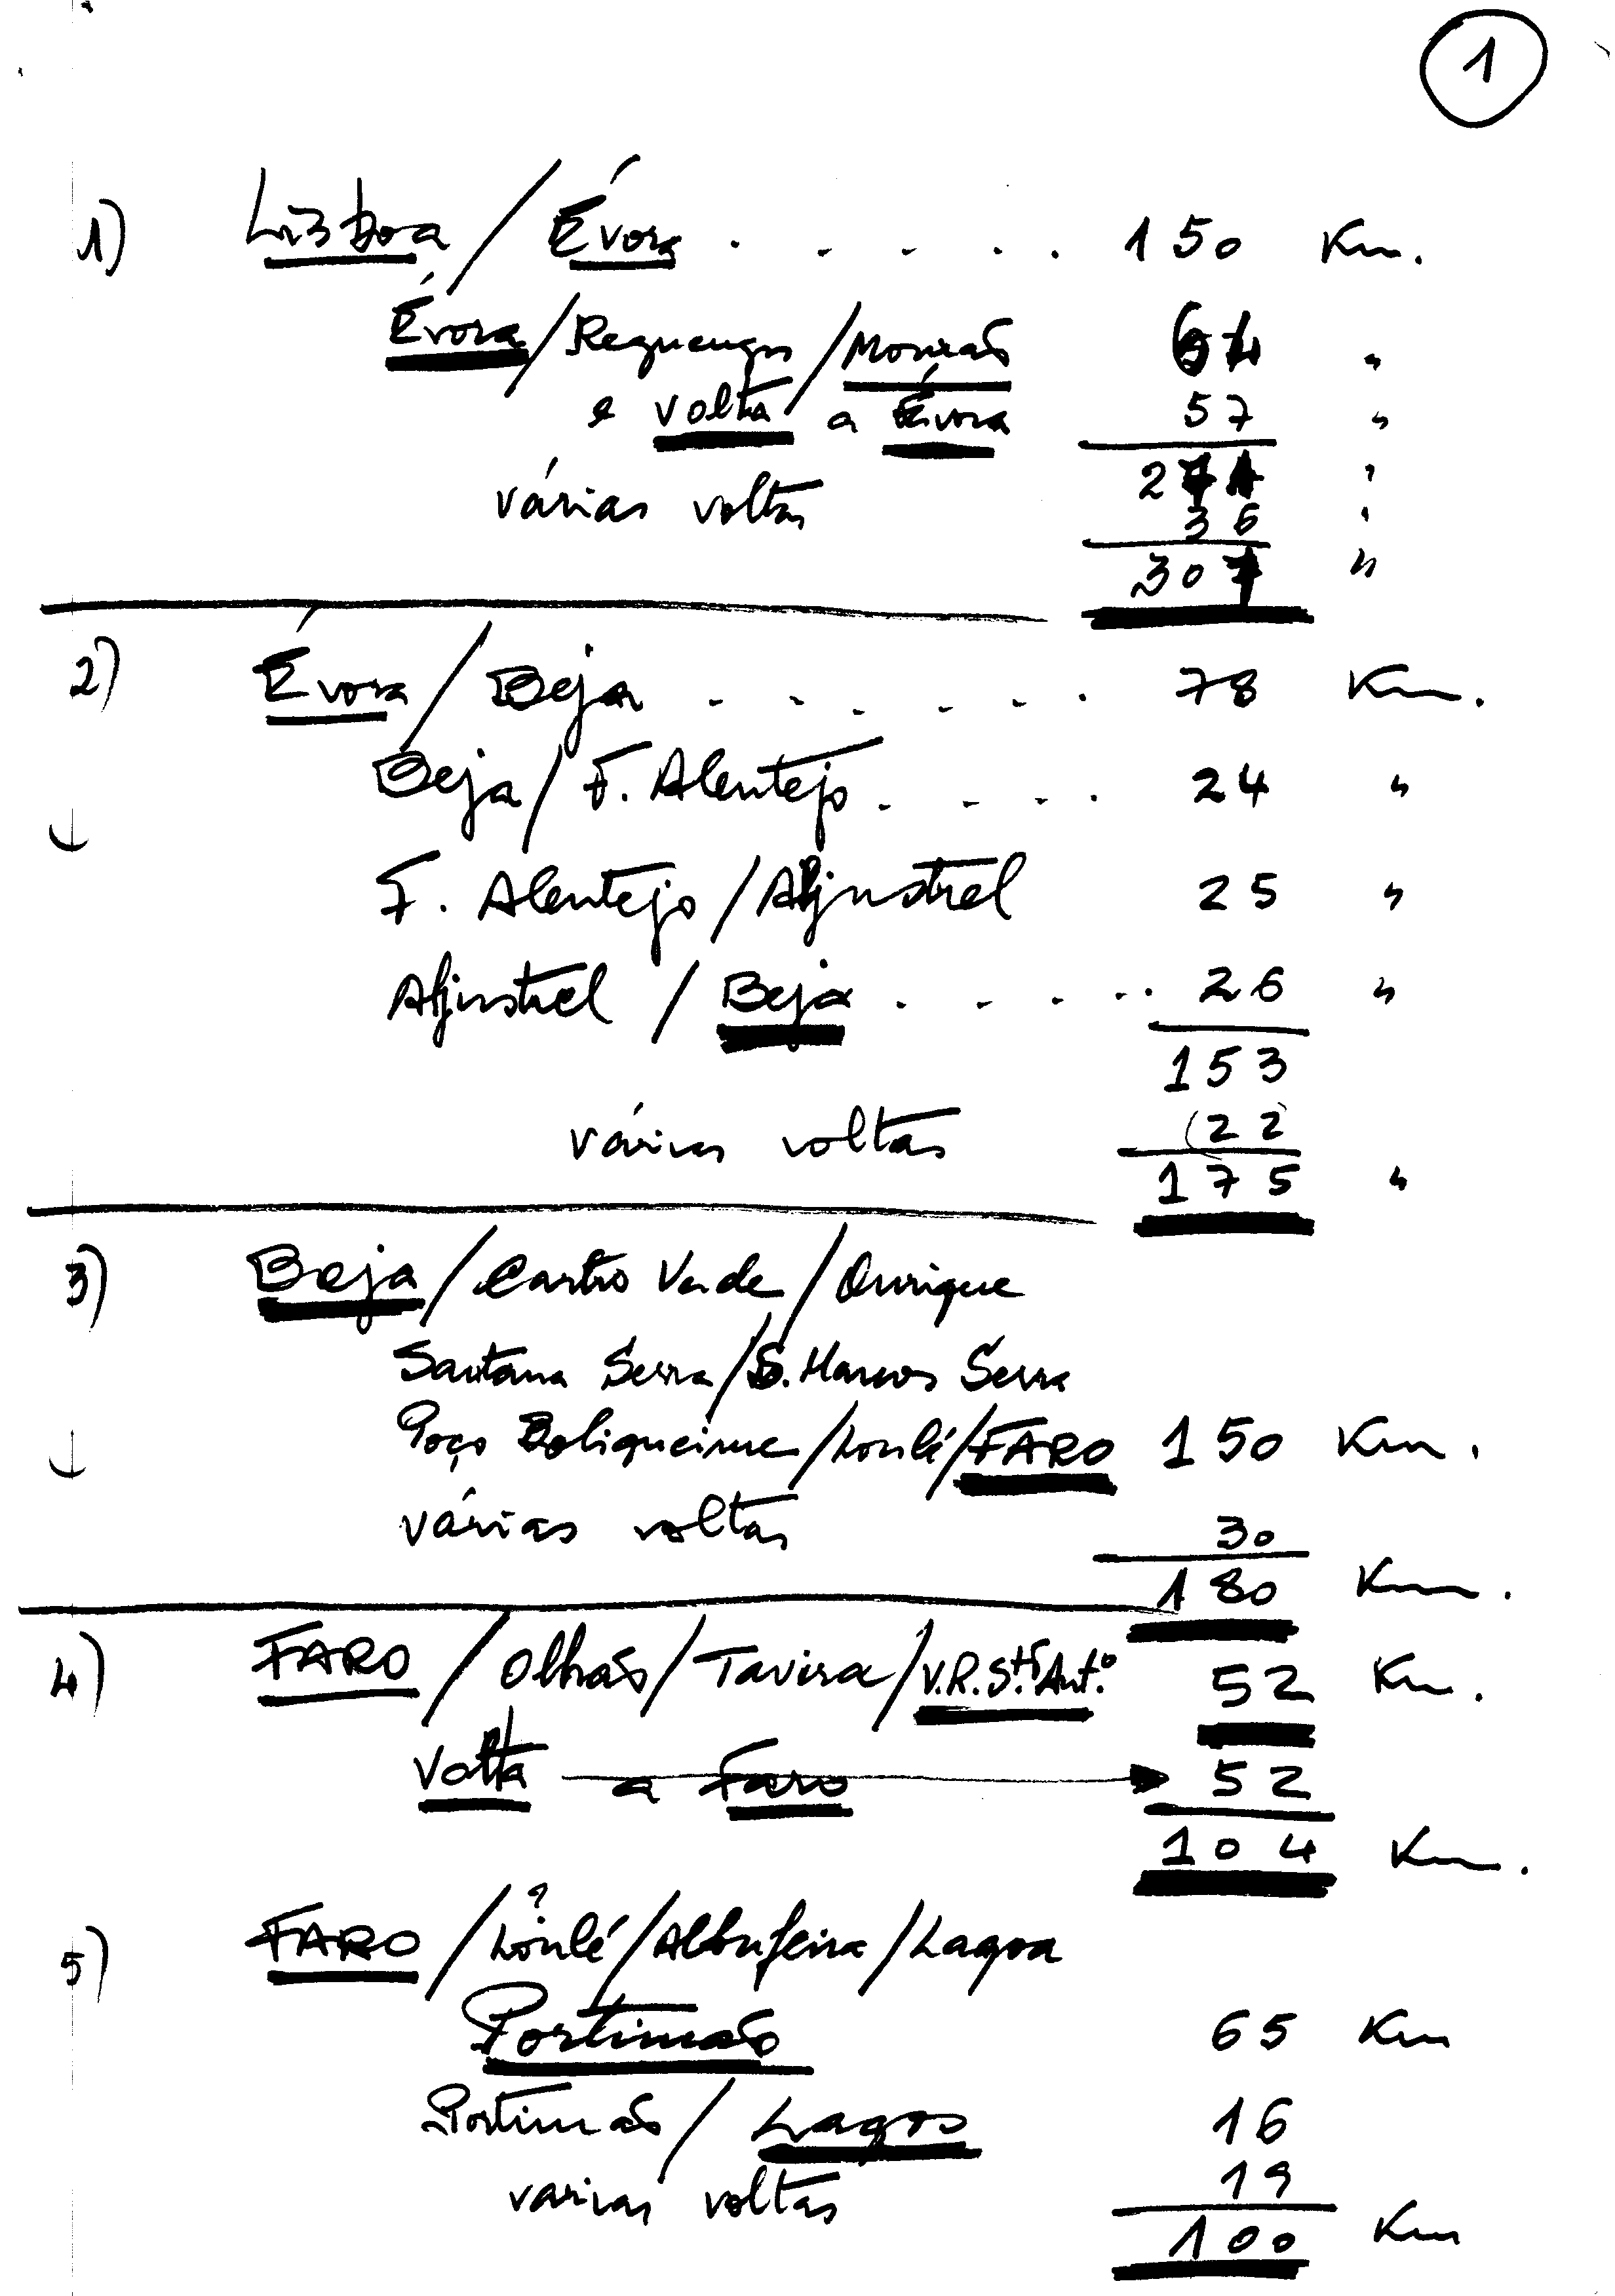 1
1) Lisboa / Évora . . . . . 150 Km.
Évora / Reguengos / Mourão 64 "
e volta a Évora 57 "
271 "
várias voltas 36 "
307 "
2) Évora / Beja . . . . . . 78 Km.
Beja / F. Alentejo . . . . 24 "
F. Alentejo / Aljustrel 25 "
Aljustrel / Beja . . . . . 26 "
153
várias voltas (22)
175 "
3) Beja / Castro Verde / Ourique
Santana Serra / S. Marcos Serra
Poço Boliqueime / Loulé / FARO 150 Km.
várias voltas 30
180 Km.
4) FARO / Olhão / Tavira / V.R. Stº Antº 52 Km.
Volta a Faro → 52
104 Km.
?
5) FARO / Loulé / Albufeira / Lagoa
Portimão 65 Km
Portimão / Lagos 16
varias voltas 19
100 Km